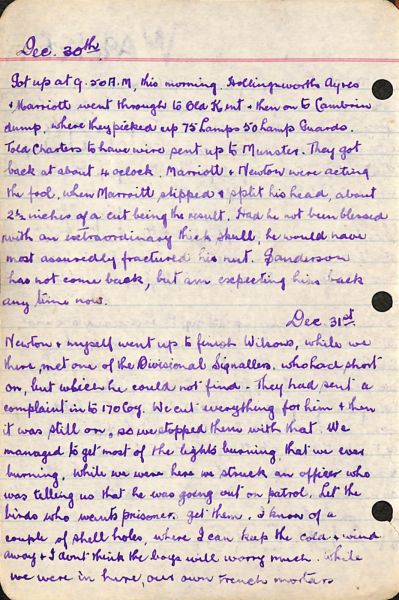 Dec. 30th.
Got up at 9.50 A.M, this morning. Hollingsworths Ayres
+ Marriott went through to Old Kent + then on to Cambrin
dump, where they picked up 75 Lamps 50 Lamp Guards.
Told Charters to have wire sent up to Munster. They got
back at about 4 oclock. Marriott + Newton were acting
the fool, when Marroitt slipped + split his head, about
2½ inches of a cut being the result. Had he not been blessed
with an extraordinary thick skull, he would have
most assuredly fractured his nut. Sanderson
has not come back, but am expecting him back
any time now.
Dec. 31st.
Newton + myself went up to finish Wilsons, while we
there, met one of the Divisional Signallers, who had short
on, but which he could not find. They had sent a
complaint in to 170 Coy. We cut everything for him + then
it was still on, so we stopped them with that. We
managed to get most of the lights burning that we ever
burning. While we were here we struck an officer who
was telling us that he was going out on patrol. Let the
birds who wants prisoner, get them. I know of a
couple of shell holes, where I can keep the cold + wind
away + I dont think the boys will worry much. While
we were in here, our own French mortars